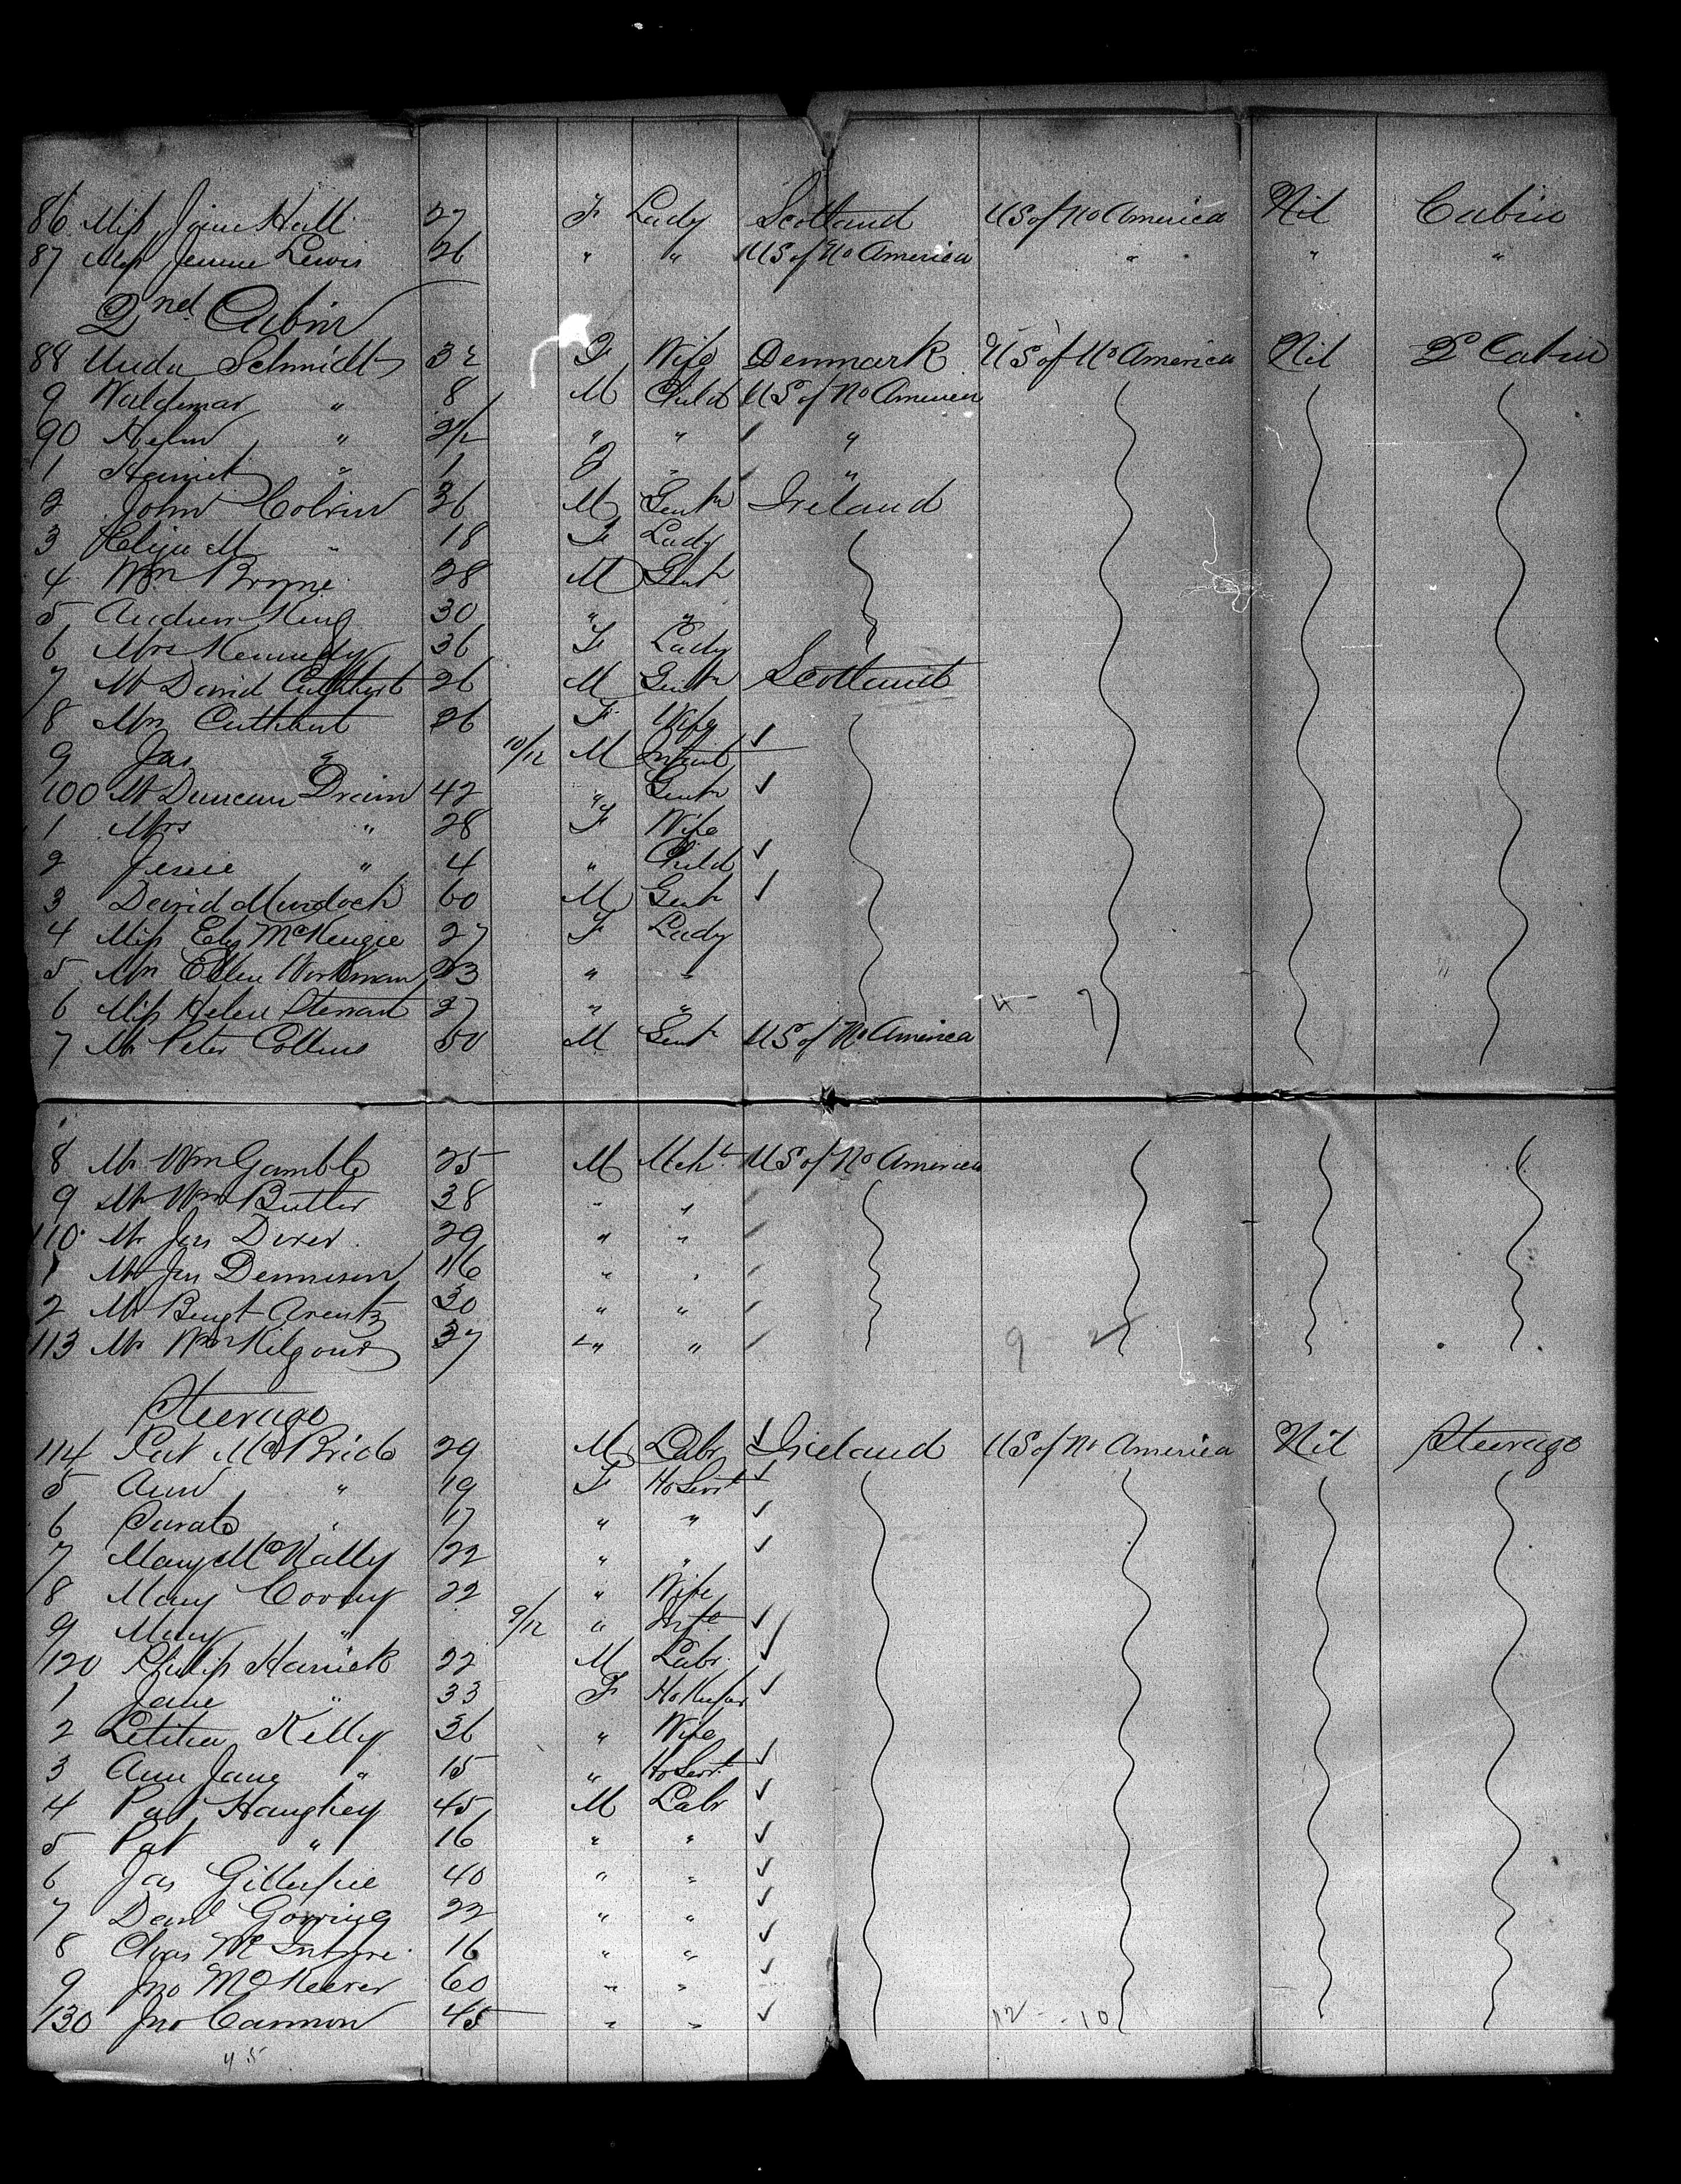 86 Miss Jane Hall 27 F Lady Scotland US of No America Nil Cabin
87 Miss Jennie Lewis 26 " " US of No America " " "
2nd Cabin
88 Schmidt 32 F Wife Denmark US of No America Nil 2d Cabin
9 Waldemar " 8 M Child US of No America
90 " 2 1/2 " " "
1 Harriet " 1 F " "
2 John 36 M Gentn Ireland
3 Eliza M " 18 F Lady
4 Wm Bryne 28 M Gentn
5 Andrew King 30 " "
6 Mrs Kennedy 36 F Lady
7 Mr David Cuthbert 26 M Gentn Scotland
8 Mrs Cuthbert 26 F Wife
9 Jas " 10/12 M Infant
100 Mr Duncan Drain 42 " Gentn
1 Mrs " 28 F Wife
2 Jessie " 4 " Child
3 David Murdoch 60 M Gentn
4 Miss Elis McKenzie 27 F Lady
5 Mrs Ellen Workman 23 " "
6 Miss Helen Stewart 27 " "
7 Mr Peter Collins 50 M Gent US of No America
8 Mr Wm Gamble 25 M Mcht US of No America
9 Mr Wm Butler 38 " "
110 Mr Jas 29 " "
1 Mr Jas Dennison 46 " "
2 Mr Bengt Arentz 30 " "
113 Mr Wm Kilgour 37 " "
Steerage
114 Pat McBride 29 M Labr Ireland US of No America Nil Steerage
5 Ann " 19 F Ho Servt
6 Sarah " 17 " "
7 Mary McNally 22 " "
8 Mary 22 " Wife
9 Mary " 9/12 " Inft
120 Philip 22 M Labr
1 Jane " 33 F Ho Keper
2 Letitia Kelly 36 " Wife
3 Ann Jane " 15 " Ho Servt
4 Pat Haughey 45 M Labr
5 Pat " 16 " "
6 Jas Gillespie 40 " "
7 Danl 22 " "
8 Chas McIntyre 16 " "
9 Jno McKeever 60 " "
130 Jno Cannon 45 " " 12 - 10
45